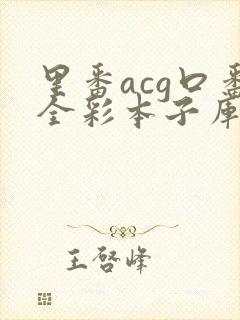 里番acg口番
全彩本子库
王启峰